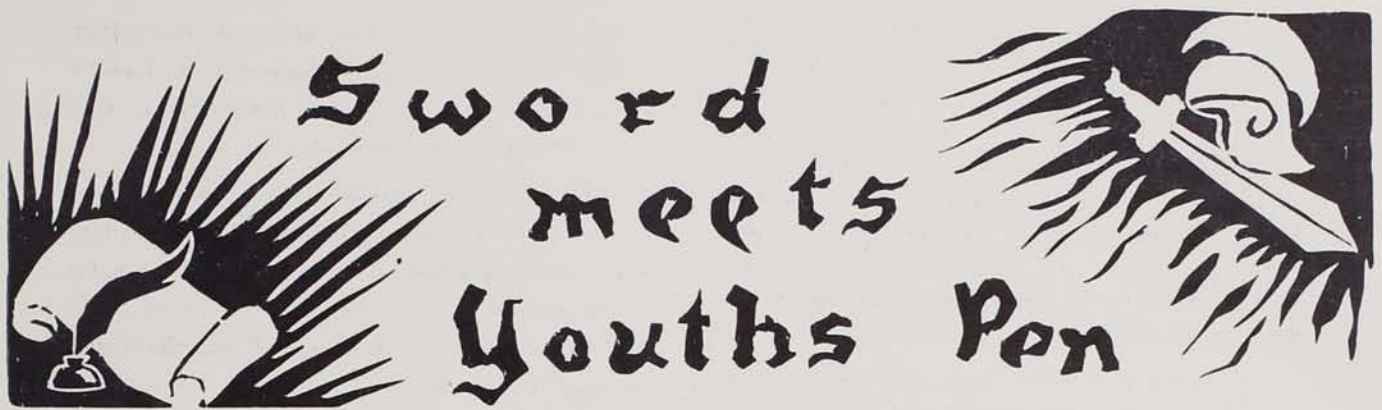 Sword
meets
Youths Pen